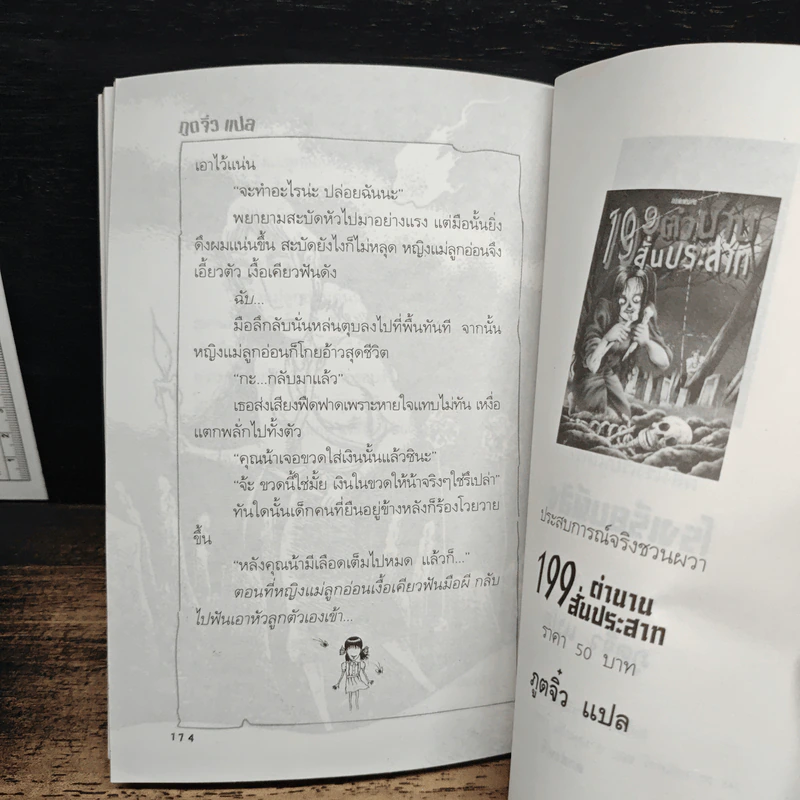 ภูตจิ๋ว แปล
เอาไว้แน่น
"จะทำอะไรน่ะ ปล่อยฉันนะ"
พยายามสะบัดหัวไปมาอย่างแรง แต่มือนั้นยิ่ง
ดึงผมแน่นขึ้น สะบัดยังไงก็ไม่หลุด หญิงแม่ลูกอ่อนจึง
เอี้ยวตัว เงื้อเคียวฟันดัง
ฉับ...
มือลึกลับนั่นหล่นตุบลงไปที่พื้นทันที จากนั้น
หญิงแม่ลูกอ่อนก็โกยอ้าวสุดชีวิต
"กะ...กลับมาแล้ว"
เธอส่งเสียงฟืดฟาดเพราะหายใจแทบไม่ทัน เหงื่อ
แตกพลั่กไปทั้งตัว
"คุณน้าเจอขวดใส่เงินนั้นแล้วซินะ"
"จ้ะ ขวดนี้ใช่มั้ย เงินในขวดให้น้าจริงๆใช่รึเปล่า"
ทันใดนั้นเด็กคนที่ยืนอยู่ข้างหลังก็ร้องโวยวาย
ขึ้น
"หลังคุณน้ามีเลือดเต็มไปหมด แล้วก็..."
ตอนที่หญิงแม่ลูกอ่อนเงื้อเคียวฟันมือผี กลับ
ไปฟันเอาหัวลูกตัวเองเข้า...
174
199 ตำนาน
สั่นประสาท
ประสบการณ์จริงชวนผวา
199 ตำนาน
สั่นประสาท
ราคา 50 บาท
ภูตจิ๋ว แปล